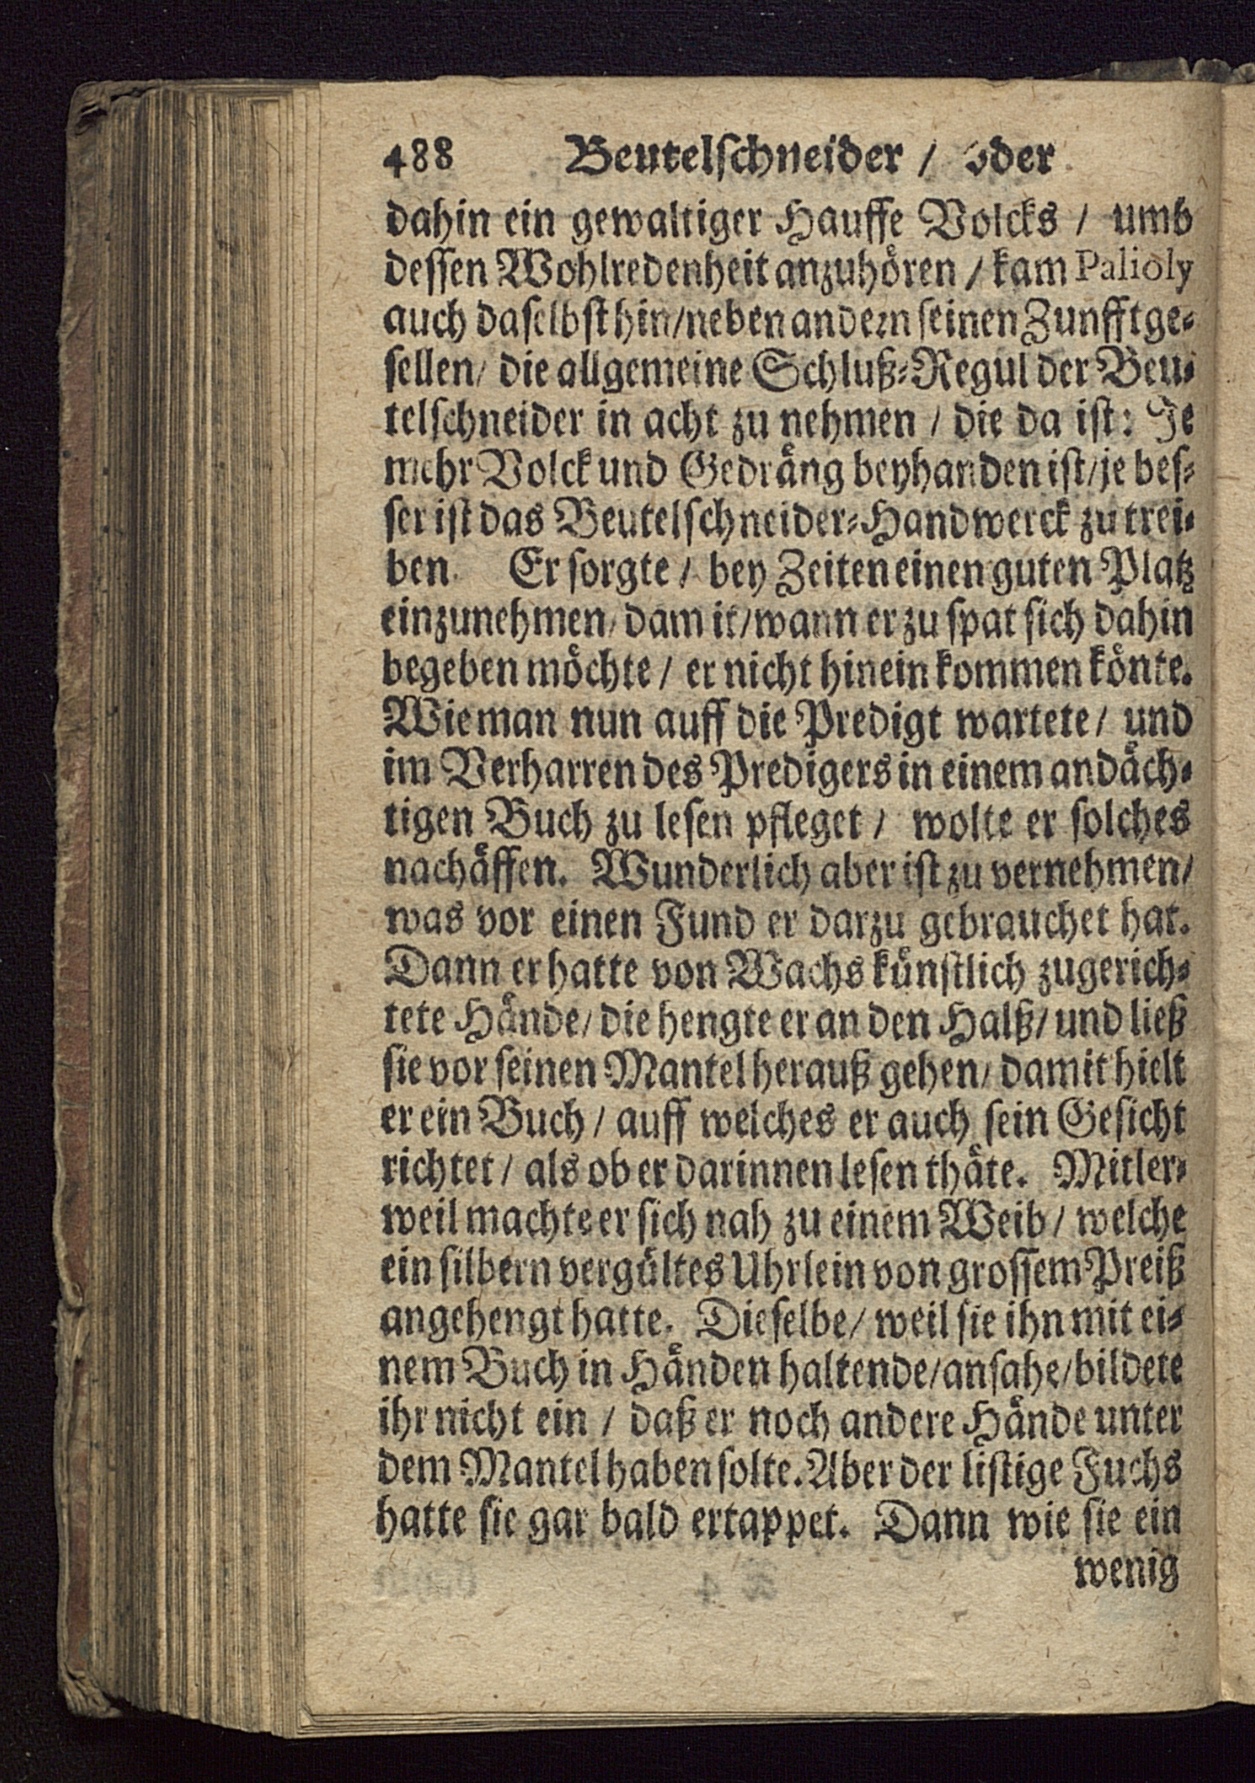 488 Beutelschneider / oder
dahin ein gewaltiger Hauffe Volcks / umb
dessen Wohlredenheit anzuhören / kam Palioly
auch daselbst hin/neben andern seinen Zunfftge-
sellen/ die allgemeine Schluß-Regul der Beu-
telschneider in acht zu nehmen / die da ist: Je
mehr Volck und Gedräng beyhanden ist/je bes-
ser ist das Beutelschneider-Handwerck zu trei-
ben. Er sorgte / bey Zeiten einen guten Platz
einzunehmen/ damit/wann er zu spat sich dahin
begeben möchte / er nicht hinein kommen könte.
Wie man nun auff die Predigt wartete / und
im Verharren des Predigers in einem andäch-
tigen Buch zu lesen pfleget / wolte er solches
nachäffen. Wunderlich aber ist zu vernehmen/
was vor einen Fund er darzu gebrauchet hat.
Dann er hatte von Wachs künstlich zugerich-
tete Hände/ die hengte er an den Halß/ und ließ
sie vor seinen Mantel herauß gehen/ damit hielt
er ein Buch / auff welches er auch sein Gesicht
richtet / als ob er darinnen lesen thäte. Mitler-
weil machte er sich nah zu einem Weib / welche
ein silbern vergültes Uhrlein von grossem Preiß
angehengt hatte. Dieselbe/ weil sie ihn mit ei-
nem Buch in Händen haltende/ansahe/bildete
ihr nicht ein / daß er noch andere Hände unter
dem Mantel haben solte. Aber der listige Fuchs
hatte sie gar bald ertappet. Dann wie sie ein
wenig